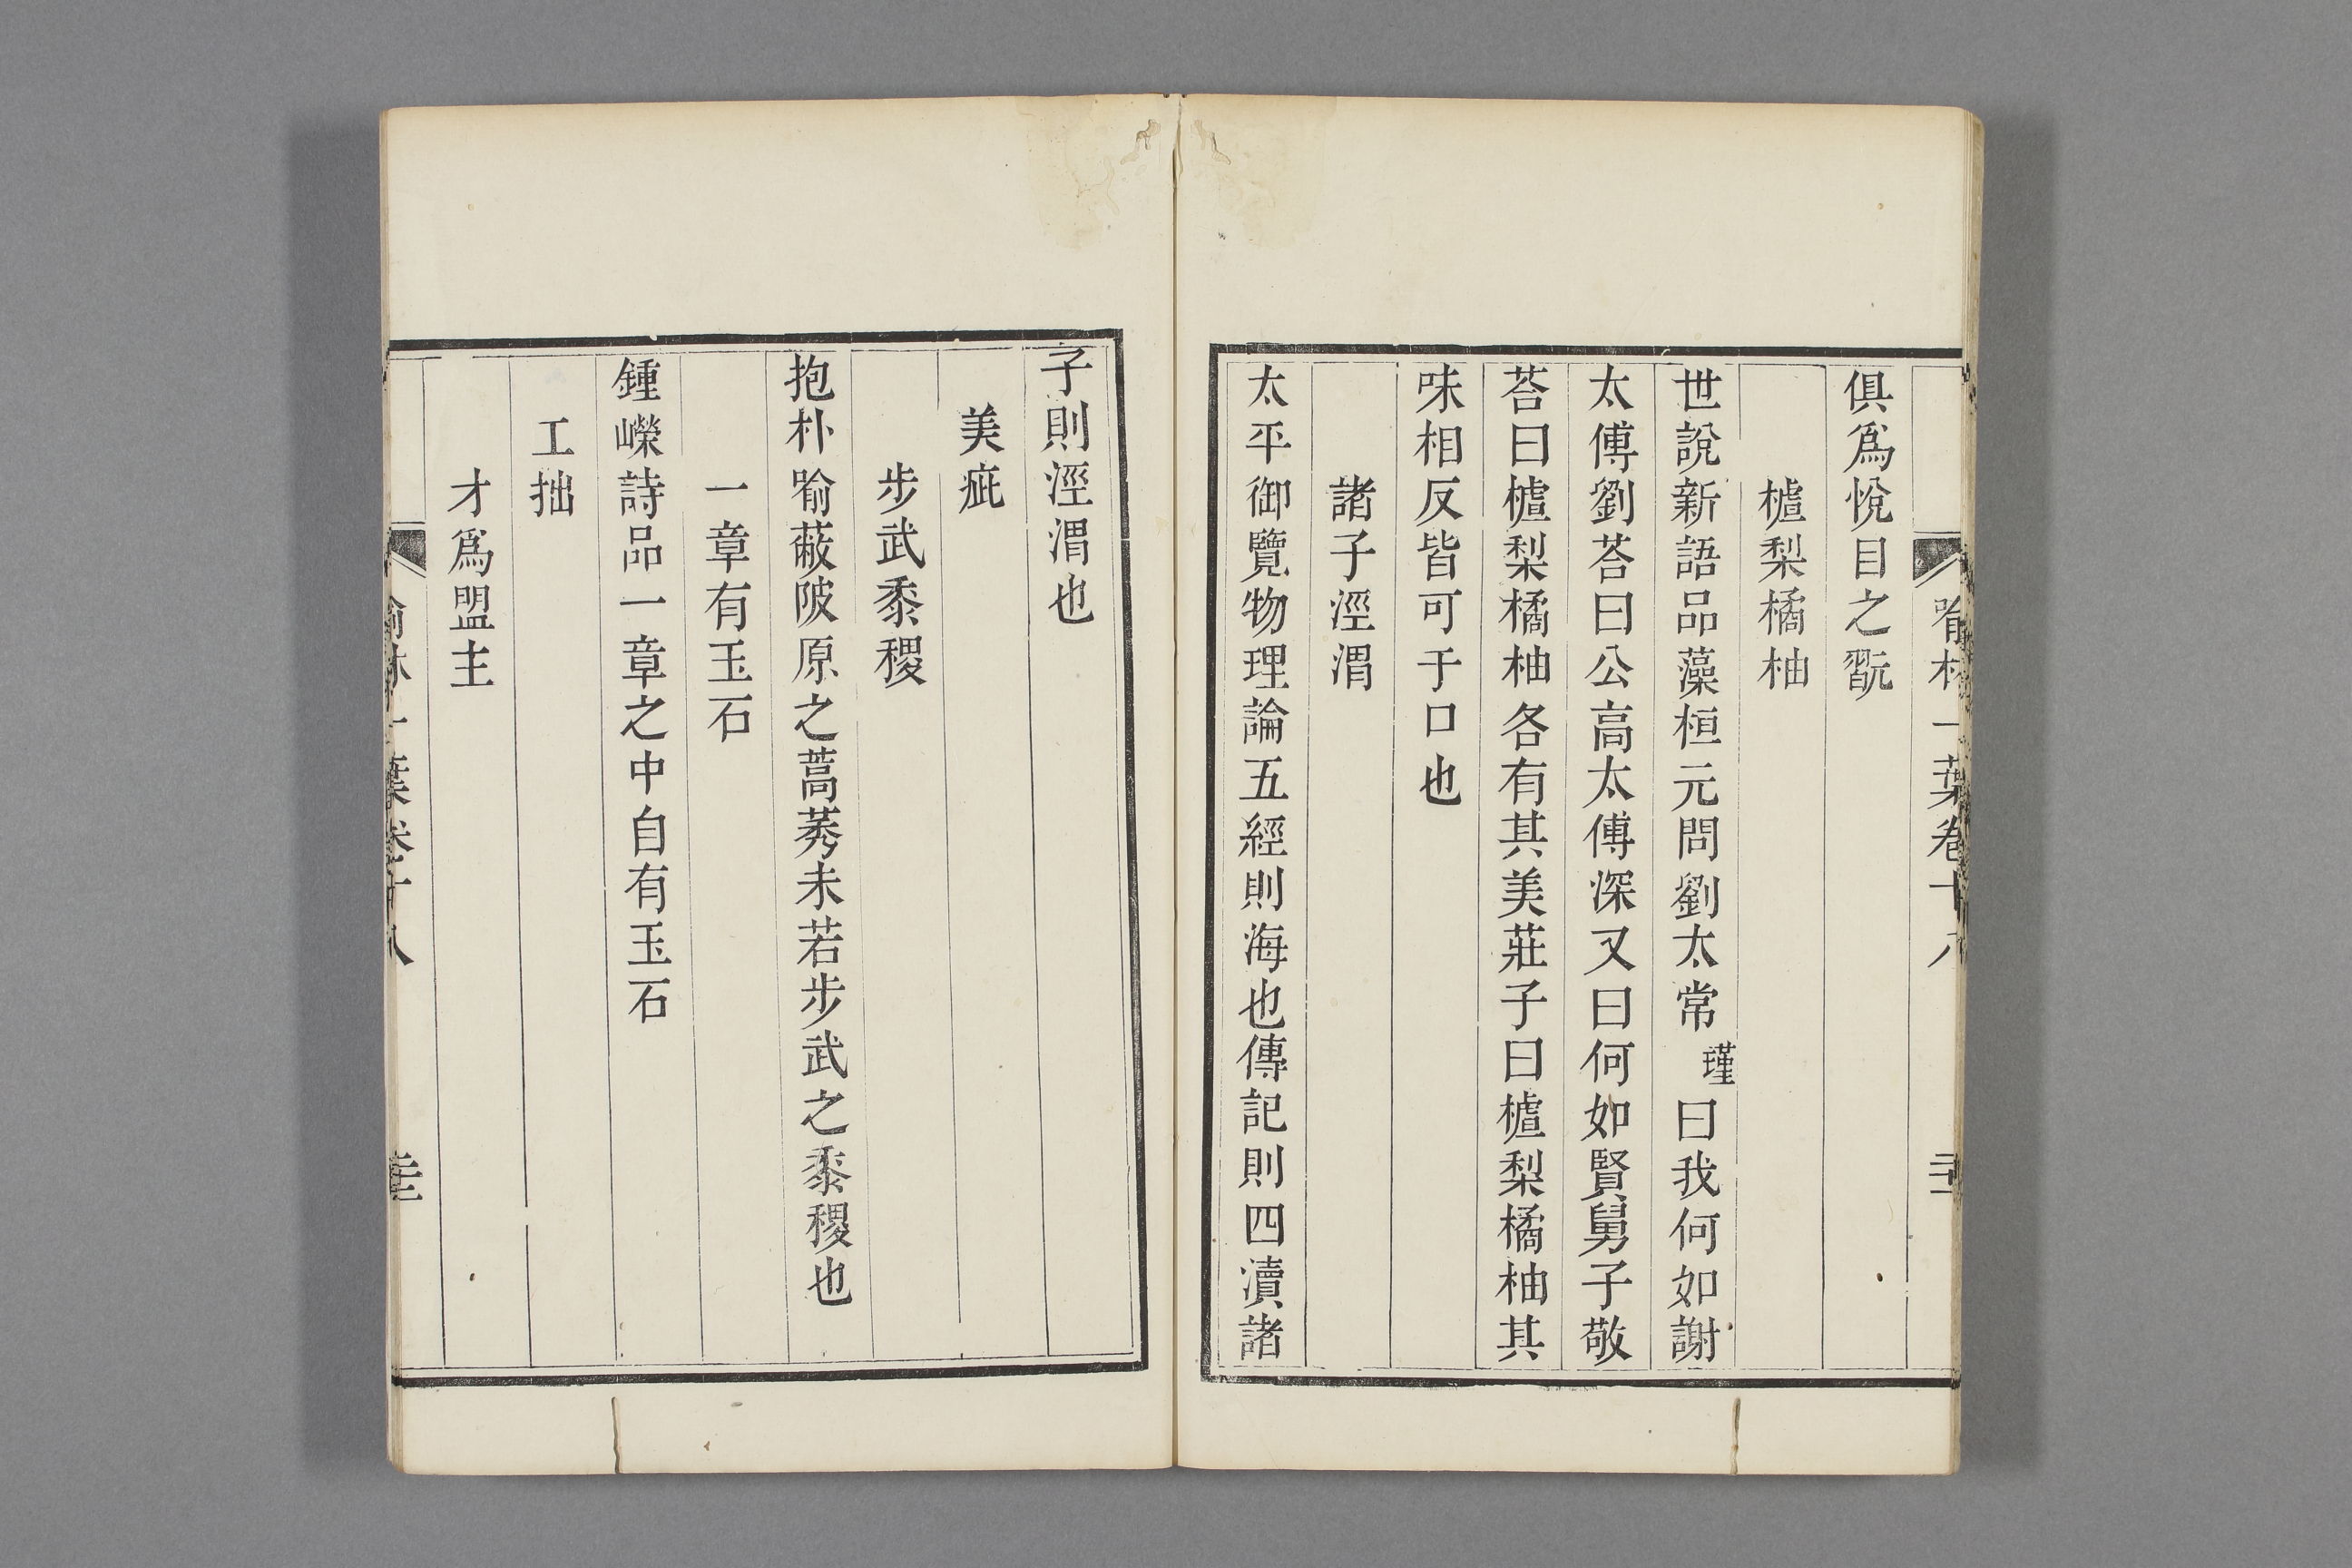 喻林一葉卷十八
俱爲悅目之翫
樝梨橘柚
世說新語品藻桓元問劉太常瑾曰我何如謝
太傅劉荅曰公高太傅深又曰何如賢舅子敬
荅曰樝梨橘柚各有其美莊子曰樝梨橘柚其
味相反皆可于口也
諸子涇渭
太平御覽物理論五經則海也傳記則四瀆諸
子則涇渭也
美疵
步武黍稷
抱朴喻蔽陂原之蒿莠未若步武之黍稷也
一章有玉石
鍾嶸詩品一章之中自有玉石
工拙
才爲盟主
喻林一葉卷十八